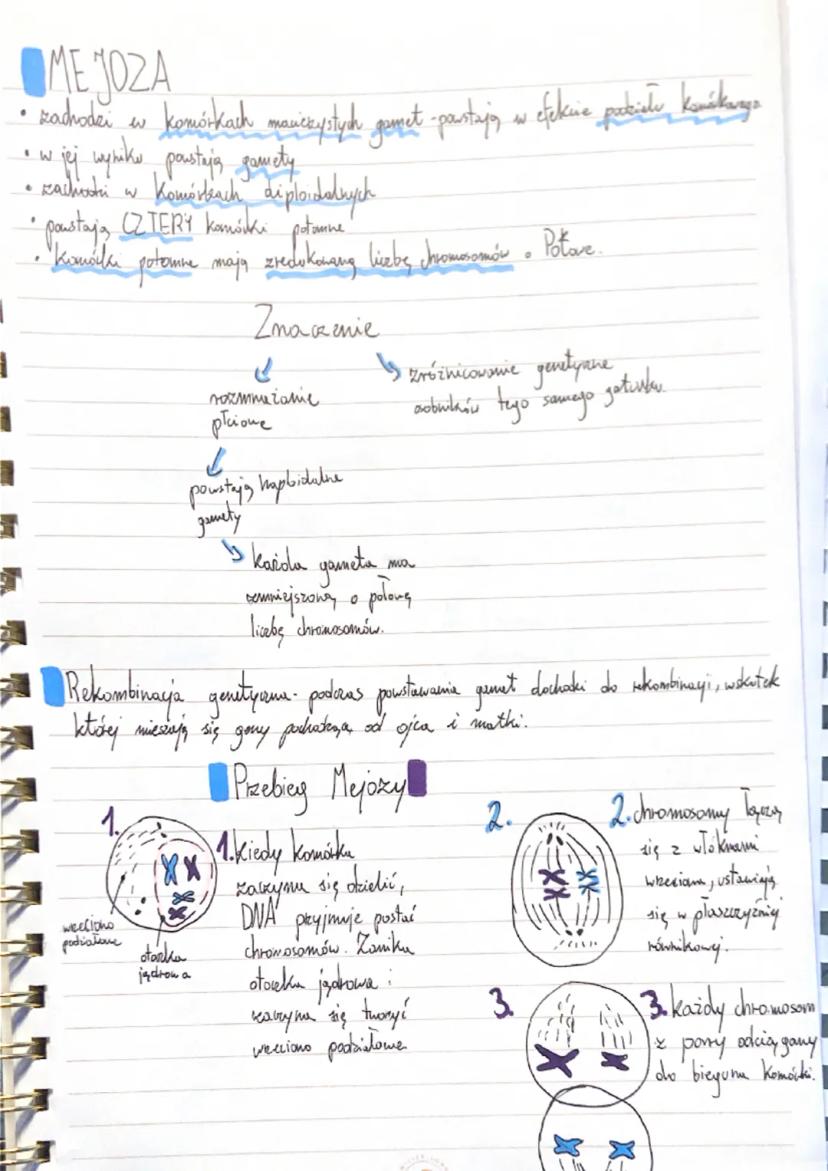 MEJOZA
• zachodzi w komórkach macierzystych gamet - powstają w efekcie podziału komórkowego
• w jej wyniku powstają gamety
• zachodzi w komórkach diploidalnych
• powstają CZTERY komórki potomne
• komórki potomne mają zredukowaną liczbę chromosomów o Połowę.
Znaczenie
rozmnażanie
płciowe
zróżnicowanie genetyczne
osobników tego samego gatunku.
powstają haploidalne
gamety
każda gameta ma
zmniejszoną o połowę
liczbę chromosomów.
Rekombinacja genetyczna - podczas powstawania gamet dochodzi do rekombinacji, wskutek
której mieszają się geny pochodzące od ojca i matki.
Przebieg Mejozy
1.
wrzeciono
podziałowe
otoczka
jądrowa
1. Kiedy komórka
zaczyna się dzielić,
DNA przyjmuje postać
chromosomów. Zanika
otoczka jądrowa i
zaczyna się tworzyć
wrzeciono podziałowe
2.
2. chromosomy łączą
się z włóknami
wrzeciona, ustawiają
się w płaszczyźnie
równikowej.
3.
3. każdy chromosom
z pary odciągany
do bieguna komórki.